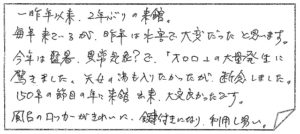 一昨年以来、2年ぶりの来館。
毎年来ているが、昨年は水害で大変だったと思います。
今年は猛暑、異常発生?で、「〇〇〇」の大量発生に
驚きました。天女の湯も入りたかったが、断念しました。
150年の節目の年に来館出来、大変良かったです。
風呂のロッカーがきれいに、鍵付きになり、利用し易い。